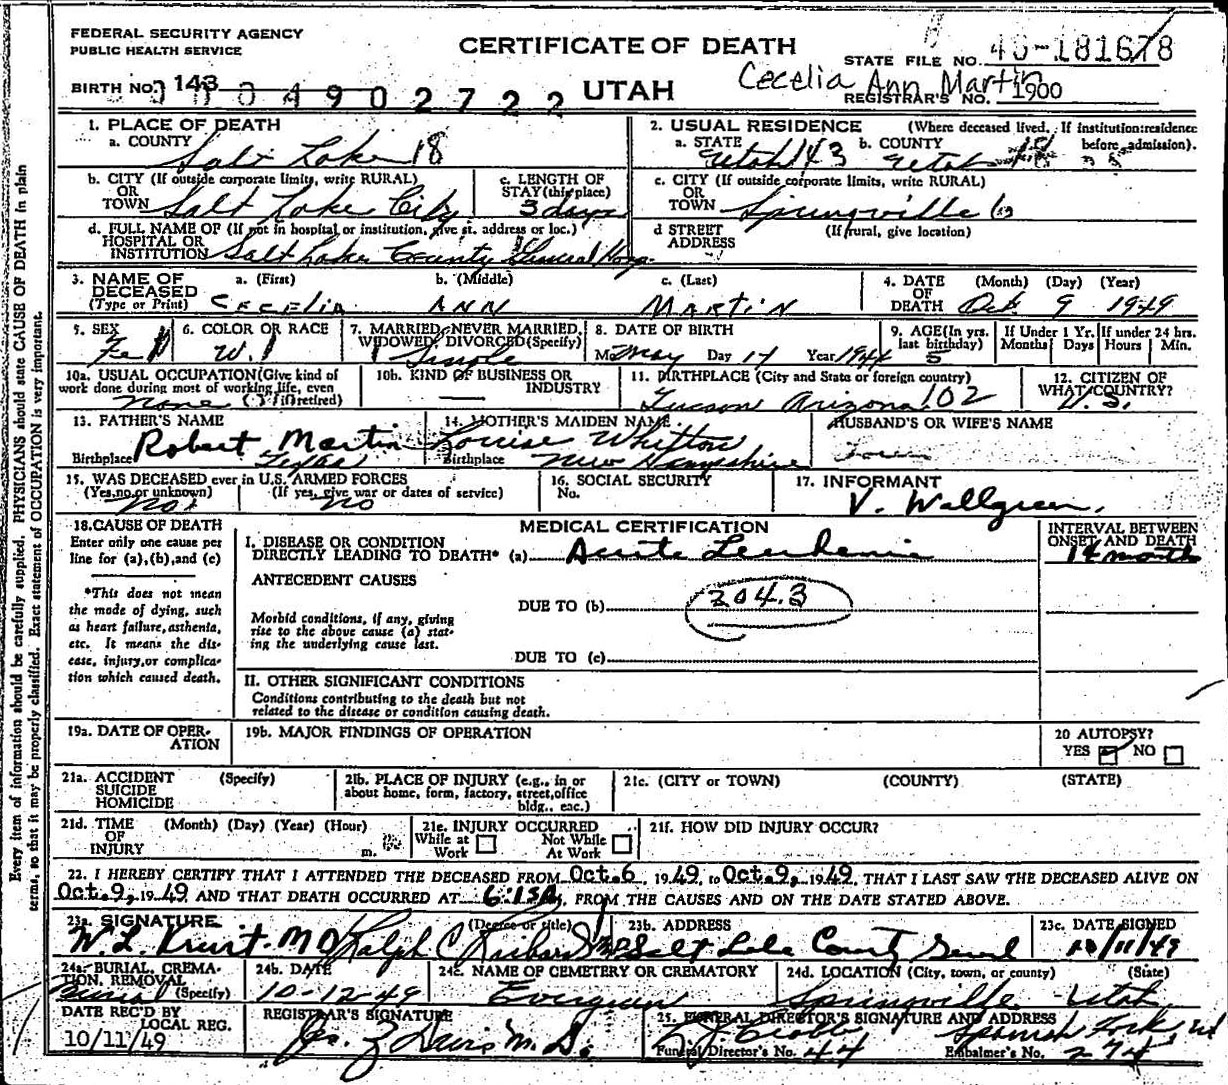 FEDERAL SECURITY AGENCY
PUBLIC HEALTH SERVICE
CERTIFICATE OF DEATH
STATE FILE NO. 181678
BIRTH NO. 143
004902722
UTAH
Cecelia Ann Martin
REGISTRAR'S NO. 1900
1. PLACE OF DEATH
a. COUNTY
Salt Lake 18
2. USUAL RESIDENCE (Where deceased lived. If institution: residence before admission).
a. STATE Utah 143 b. COUNTY Utah
b. CITY (If outside corporate limits, write RURAL)
OR
TOWN Salt Lake City
c. LENGTH OF
STAY (this place)
3 days
c. CITY (If outside corporate limits, write RURAL)
OR
TOWN Springville
d. FULL NAME OF (If not in hospital or institution, give st. address or loc.)
HOSPITAL OR
INSTITUTION Salt Lake County General Hosp.
d STREET (If rural, give location)
ADDRESS
3. NAME OF DECEASED
(Type or Print)
a. (First) Cecelia
b. (Middle) Ann
c. (Last) Martin
4. DATE OF DEATH (Month) (Day) (Year)
Oct. 9 1949
5. SEX
Fe
6. COLOR OR RACE
W.
7. MARRIED, NEVER MARRIED,
WIDOWED, DIVORCED (Specify)
Single
8. DATE OF BIRTH
Mo. May Day 17 Year 1944
9. AGE (In yrs. last birthday)
5
If Under 1 Yr. Months Days
If under 24 hrs. Hours Min.
10a. USUAL OCCUPATION (Give kind of
work done during most of working life, even
if retired)
None
10b. KIND OF BUSINESS OR
INDUSTRY
11. BIRTHPLACE (City and State or foreign country)
Tucson Arizona 102
12. CITIZEN OF
WHAT COUNTRY?
U.S.
13. FATHER'S NAME
Robert Martin
Birthplace Texas
14. MOTHER'S MAIDEN NAME
Louise Whitton
Birthplace New Hampshire
HUSBAND'S OR WIFE'S NAME
15. WAS DECEASED ever in U.S. ARMED FORCES
(Yes, no, or unknown) (If yes, give war or dates of service)
No no
16. SOCIAL SECURITY
No.
17. INFORMANT
V. Wallgreen.
18. CAUSE OF DEATH
Enter only one cause per
line for (a), (b), and (c)
*This does not mean
the mode of dying, such
as heart failure, asthenia,
etc. It means the dis-
ease, injury, or complica-
tion which caused death.
MEDICAL CERTIFICATION
INTERVAL BETWEEN
ONSET AND DEATH
I. DISEASE OR CONDITION
DIRECTLY LEADING TO DEATH* (a) Acute Leukemia
month
ANTECEDENT CAUSES
DUE TO (b) 204.3
Morbid conditions, if any, giving
rise to the above cause (a) stat-
ing the underlying cause last.
DUE TO (c)
II. OTHER SIGNIFICANT CONDITIONS
Conditions contributing to the death but not
related to the disease or condition causing death.
19a. DATE OF OPER-
ATION
19b. MAJOR FINDINGS OF OPERATION
20 AUTOPSY?
YES NO
21a. ACCIDENT (Specify)
SUICIDE
HOMICIDE
21b. PLACE OF INJURY (e.g., in or
about home, form, factory, street, office
bldg., eac.)
21c. (CITY or TOWN) (COUNTY) (STATE)
21d. TIME (Month) (Day) (Year) (Hour)
OF
INJURY m.
21e. INJURY OCCURRED
While at Work
Not While At Work
21f. HOW DID INJURY OCCUR?
22. I HEREBY CERTIFY THAT I ATTENDED THE DECEASED FROM Oct. 6, 1949, to Oct. 9, 1949, THAT I LAST SAW THE DECEASED ALIVE ON
Oct. 9, 1949 AND THAT DEATH OCCURRED AT 6:15 A m., FROM THE CAUSES AND ON THE DATE STATED ABOVE.
23a. SIGNATURE (Degree or title)
MD Ralph C Richards MD
23b. ADDRESS
Salt Lake County Genl
23c. DATE SIGNED
10/11/49
24a. BURIAL, CREMA-
TION, REMOVAL
(Specify)
Burial
24b. DATE
10-12-49
24c. NAME OF CEMETERY OR CREMATORY
Evergreen
24d. LOCATION (City, town, or county) (State)
Springville Utah
DATE REC'D BY
LOCAL REG.
10/11/49
REGISTRAR'S SIGNATURE
Davis M.D.
25. FUNERAL DIRECTOR'S SIGNATURE AND ADDRESS
Spanish Fork, Ut
Funeral Director's No. 44
Embalmer's No. 274
Every item of information should be carefully supplied. PHYSICIANS should state CAUSE OF DEATH in plain
terms, so that it may be properly classified. Exact statement of OCCUPATION is very important.